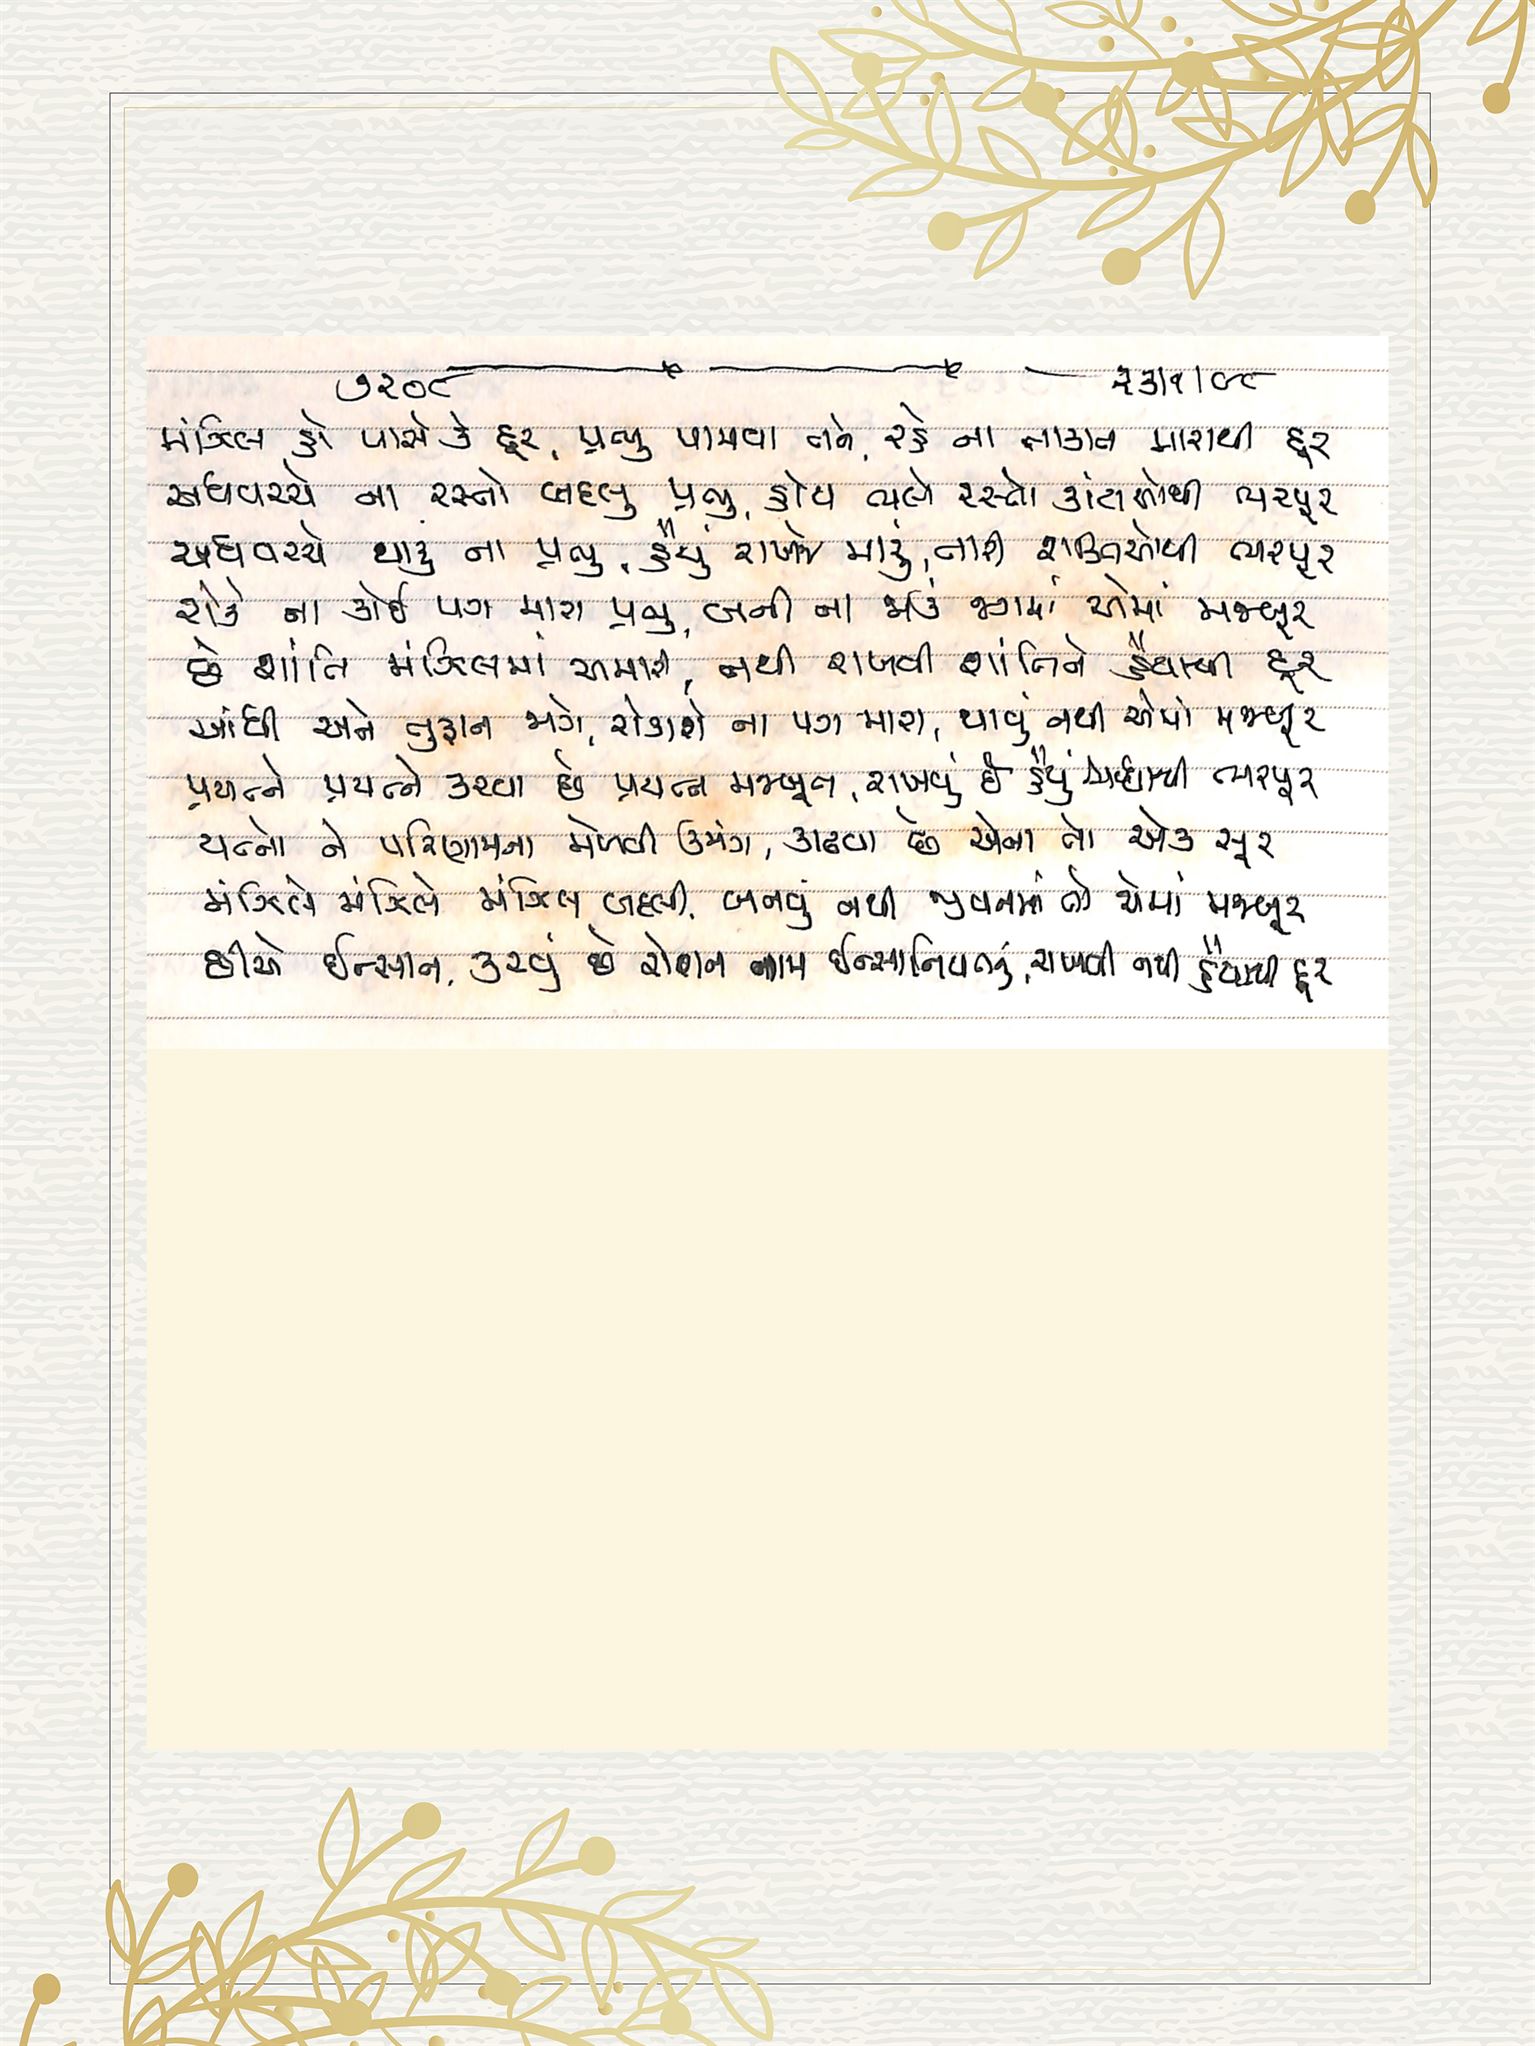 ૭૨૦૮ ૨૩/૧/૯૮
મંઝિલ હો પાસે કે દૂર, પ્રભુ પામવા તને, રહે ના તાકાત મારાથી દૂર
અધવચ્ચે ના રસ્તો બદલુ પ્રભુ, હોય ભલે રસ્તો કાંટાઓથી ભરપૂર
અધવચ્ચે થાકું ના પ્રભુ, હૈયું રાખજે મારું, તારી શક્તિઓથી ભરપૂર
રોકે ના કોઈ પગ મારા પ્રભુ, બની ના જાઉં જગમાં એમાં મજબૂર
છે શાંતિ મંઝિલમાં અમારી, નથી રાખવી શાંતિને હૈયાથી દૂર
આંધી અને તુફાન જાગે, રોકાશે ના પગ મારા, થાવું નથી એમાં મજબૂર
પ્રયત્ને પ્રયત્ને કરવા છે પ્રયત્ન મજબૂત, રાખવું છે હૈયું શ્રદ્ધાથી ભરપૂર
યત્નો ને પરિણામના મેળવી ઉમંગ, કાઢવા છે એના તો એક સૂર
મંઝિલે મંઝિલે મંઝિલ બદલી, બનવું નથી જીવનમાં તો એમાં મજબૂર
છીએ ઈન્સાન, કરવું છે રોશન નામ ઈન્સાનિયતનું, રાખવી નથી હૈયાથી દૂર